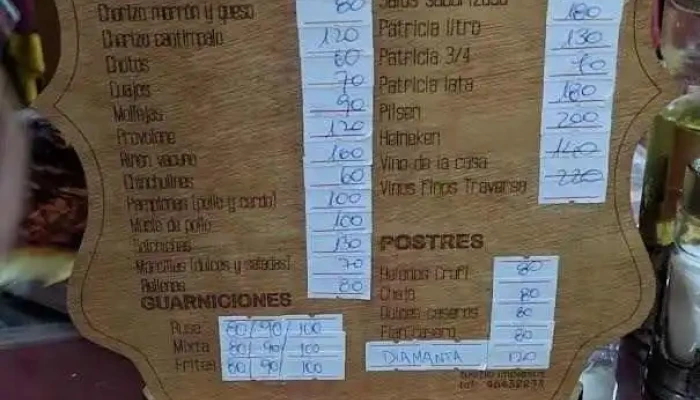 Chorizo morrón y queso 80
Chorizo cantimpalo 120
Chotos 60
Cuajos 70
Mollejas 90
Provolone 120
Riñon vacuno 160
Chinchulines 60
Pamplonas (pollo y cerdo) 100
Muslo de pollo 100
Salchichas 130
Morcillas (dulces y saladas) 70
Rellenas 80
GUARNICIONES
Rusa 80/ 90/ 100
Mixta 80/ 90/ 100
Fritas 80/ 90/ 100
180
Patricia litro 130
Patricia 3/4
Patricia lata 180
Pilsen 200
Heineken 140
Vino de la casa 220
Vinos Finos Traversa
POSTRES
Helados Crufi 80
Chajá 80
Dulces caseros 80
Flan casero 80
DIAMANTA 120